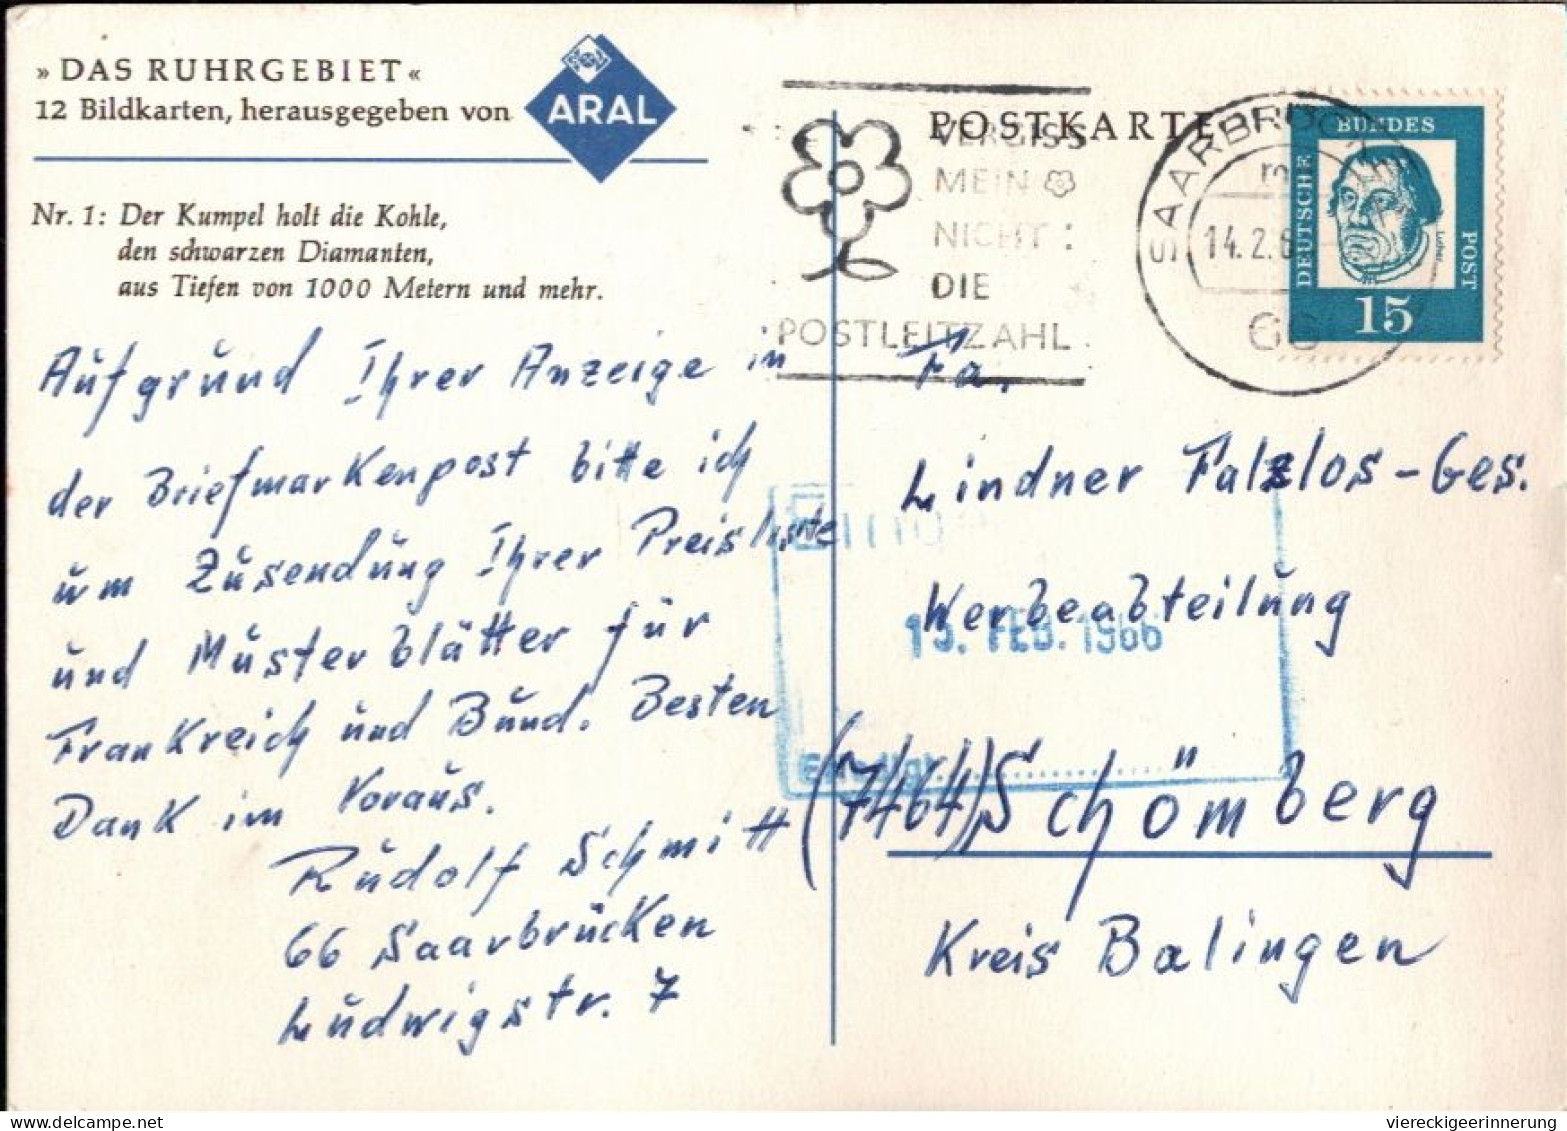 »DAS RUHRGEBIET«
12 Bildkarten, herausgegeben von
ARAL
Nr. 1: Der Kumpel holt die Kohle,
den schwarzen Diamanten,
aus Tiefen von 1000 Metern und mehr.
Aufgrund Ihrer Anzeige in
der Briefmarkenpost bitte ich
um Zusendung Ihrer Preisliste
und Musterblätter für
Frankreich und Bund. Besten
Dank im Voraus.
Rudolf Schmitt
66 Saarbrücken
Ludwigstr. 7
POSTKARTE
VERGISS
MEIN
NICHT:
DIE
POSTLEITZAHL
SAARBRÜCKEN
14.2.6
66
DEUTSCHE
BUNDES
POST
Luther
15
Fa.
Lindner Falzlos-Ges.
Werbeabteilung
15. FEB. 1966
(7464) Schömberg
Kreis Balingen
Delcampe.net
viereckigeerinnerung